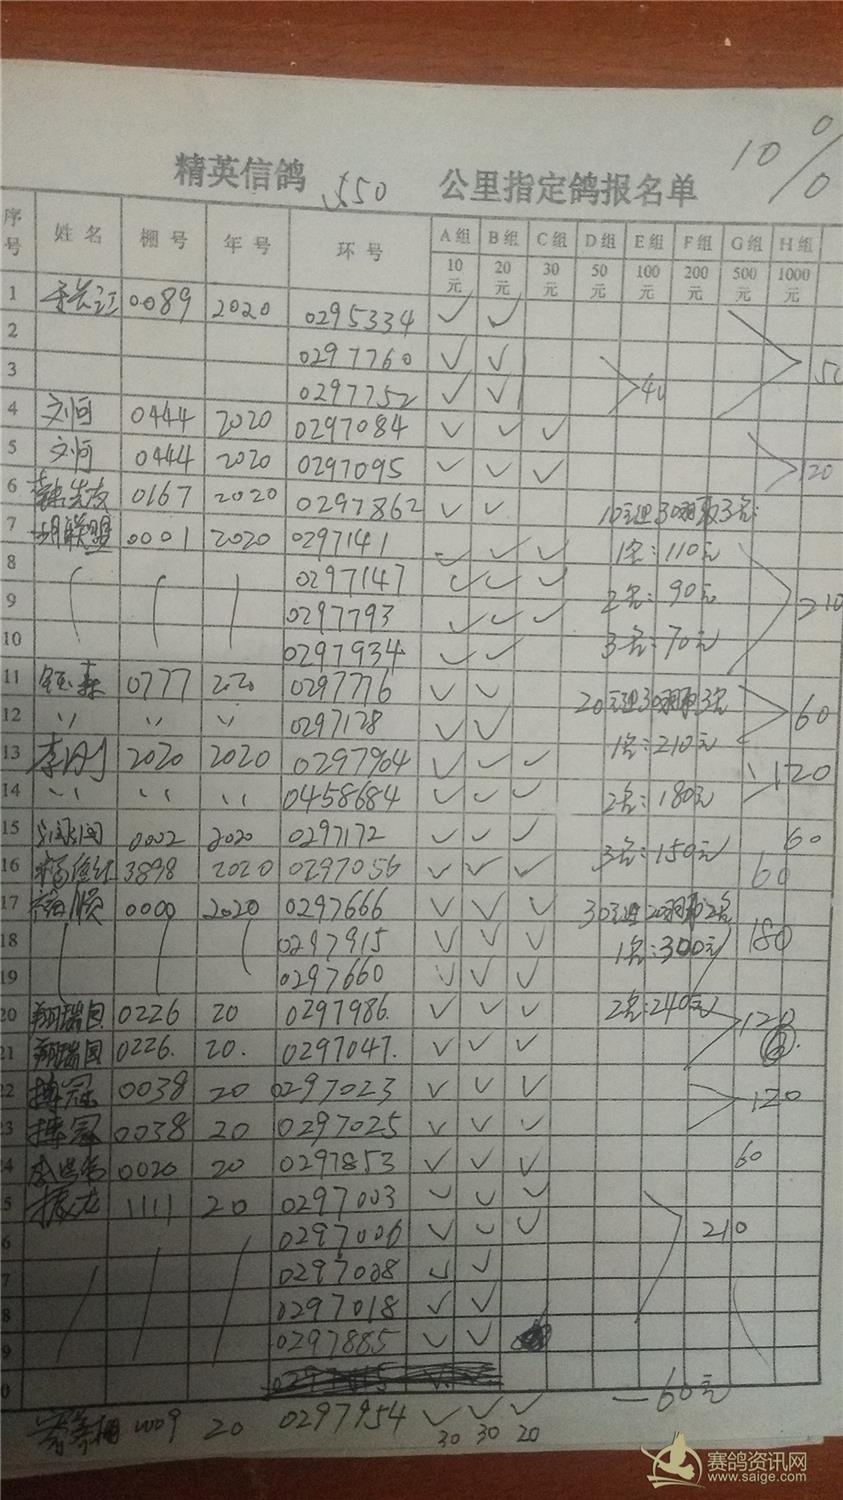 10%
精英信鸽 550 公里指定鸽报名单
序号 姓名 棚号 年号 环号 A组 B组 C组 D组 E组 F组 G组 H组
10元 20元 30元 50元 100元 200元 500元 1000元
1 0089 2020 0295334 ✓ ✓
2 0297760 ✓ ✓
3 0297752 ✓ ✓ 40
4 刘河 0444 2020 0297084 ✓ ✓ ✓
5 刘河 0444 2020 0297095 ✓ ✓ ✓ 120
6 0167 2020 0297862 ✓ ✓ 10元进30羽取3名
7 胡联盟 0001 2020 0297141 ✓ ✓ ✓ 1名:110元
8 0297147 ✓ ✓ ✓ 2名:90元 210
9 0297793 ✓ ✓ ✓
10 0297934 ✓ ✓ 3名:70元
11 0777 2020 0297776 ✓ ✓ 20元进30羽取3名 60
12 〃 〃 〃 0297128 ✓ ✓ 1名:210元
13 李刚 2020 2020 0297904 ✓ ✓ ✓ 120
14 〃 〃 〃 0458684 ✓ ✓ ✓ 2名:180元
15 0002 2020 0297172 ✓ ✓ ✓ 3名:150元 60
16 3898 2020 0297056 ✓ ✓ ✓ 60
17 2020 0297666 ✓ ✓ ✓ 30元进20羽取2名
18 0297915 ✓ ✓ ✓ 1名:300元 180
19 0297660 ✓ ✓ ✓
20 翔瑞园 0226 20 0297986. ✓ ✓ ✓ 2名:240元 120
21 翔瑞园 0226. 20. 0297047. ✓ ✓ ✓
22 搏冠 0038 20 0297023 ✓ ✓ ✓ 120
23 搏冠 0038 20 0297025 ✓ ✓ ✓
4 0020 20 0297853 ✓ ✓ ✓ 60
5 振龙 1111 20 0297003 ✓ ✓ ✓
6 0297006 ✓ ✓ ✓ 210
7 0297008 ✓ ✓
8 0297018 ✓ ✓
9 0297885 ✓ ✓
0
20 0297954 ✓ ✓ ✓ —60元
30 30 20
赛鸽资讯网
www.saige.com